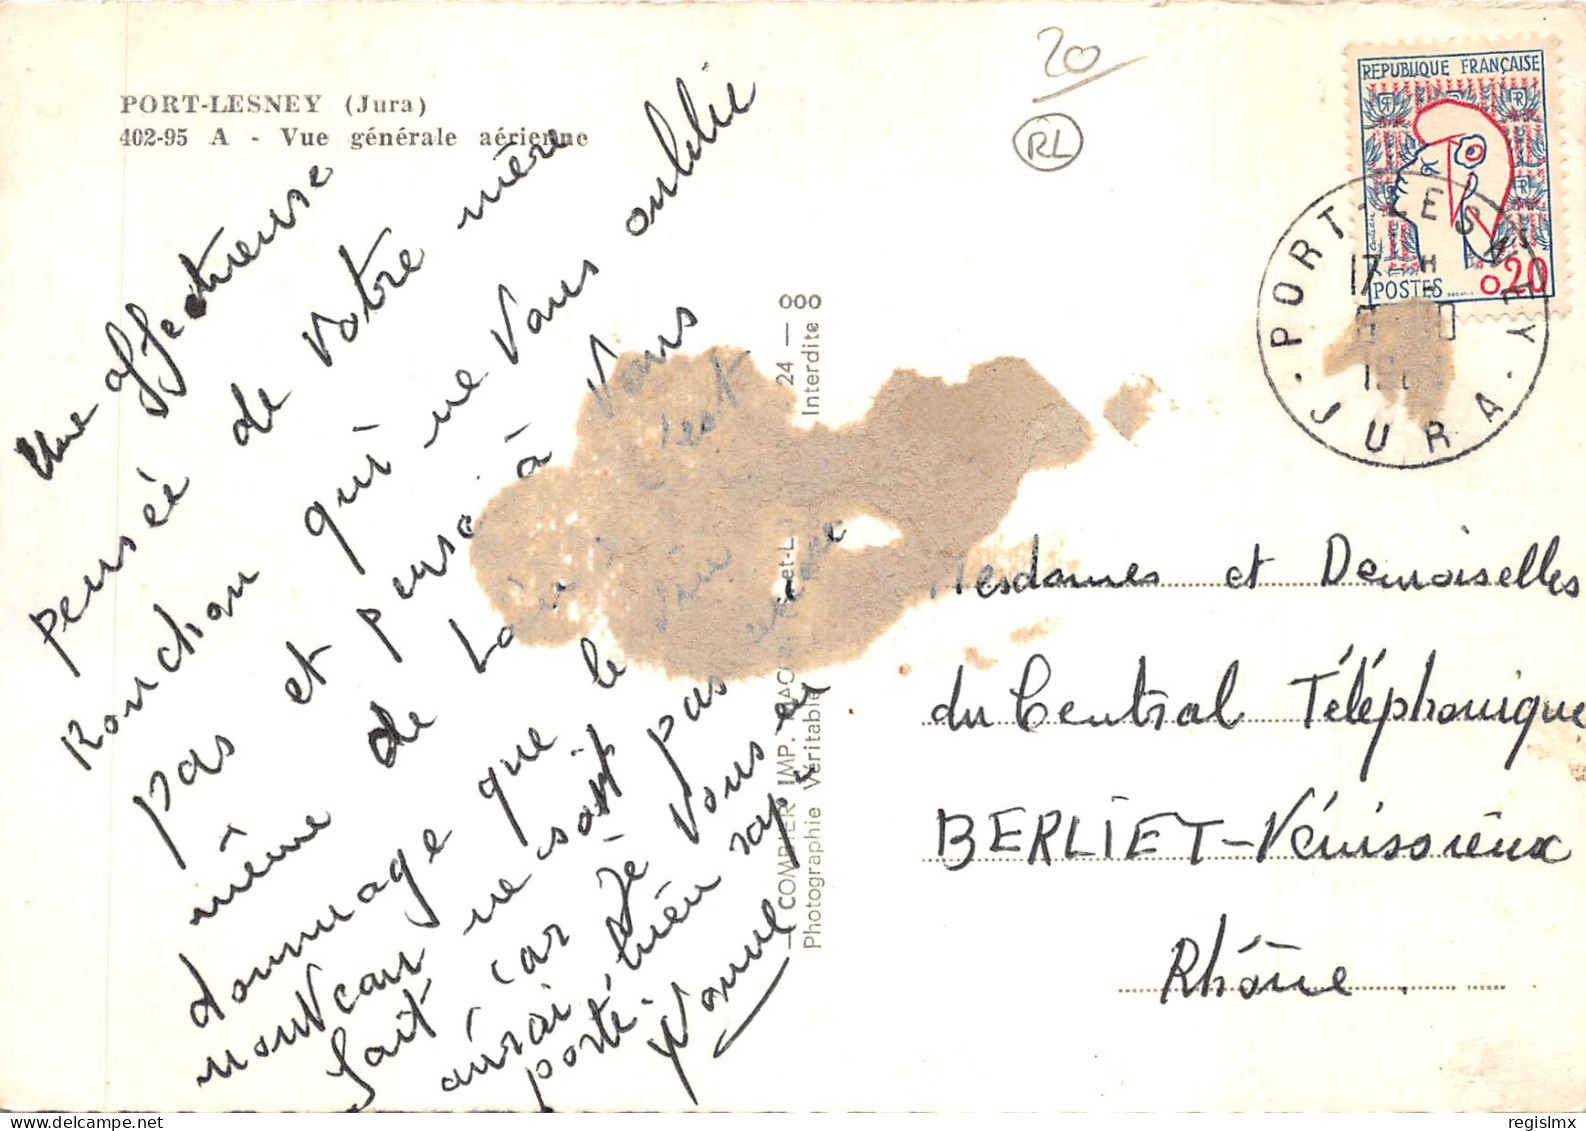 PORT-LESNEY (Jura)
402-95 A - Vue générale aérienne
Une affectueuse
pensée de votre mère
Ronchon qui ne vous oublie
pas et pense à vous
même de Loin! C'est
dommage que le vin
nouveau ne soit pas encore
fait car je vous en
aurai bien rap-
porté.
COMBIER IMP. MACON
24 — 000
Photographie Véritable
Interdite
20
RL
REPUBLIQUE FRANÇAISE
POSTES
0,20
PORT-LESNEY
17 H
JURA
Mesdames et Demoiselles
du Central Téléphonique
BERLIET-Vénissieux
Rhône.
regislmx